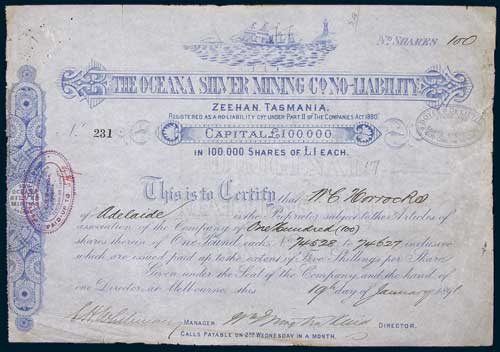 No SHARES 100
THE OCEANA SILVER MINING CO NO-LIABILITY
ZEEHAN, TASMANIA.
REGISTERED AS A NO LIABILITY COY UNDER PART II OF THE COMPANIES ACT 1890
No 231
CAPITAL £100.000
IN 100.000 SHARES OF £1 EACH.
This is to Certify that W C Horrocks
of Adelaide is the Proprietor subject to the Articles of
association of the Company of One Hundred (100)
shares therein of One Pound each, No 74528 to 74627 inclusive
which are issued paid up to the extent of Five Shillings per Share
Given under the Seal of the Company and the hand of
one Director in Melbourne this 19th day of January 1891
MANAGER
DIRECTOR.
CALLS PAYABLE ON 2ND WEDNESDAY IN A MONTH.